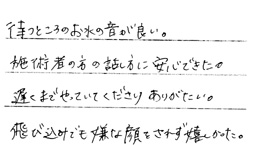 待つところのお水の音が良い。
施術者の方の話し方に安心できた。
遅くまでやっていてくださりありがたい。
飛び込みでも嫌な顔をされず嬉しかった。